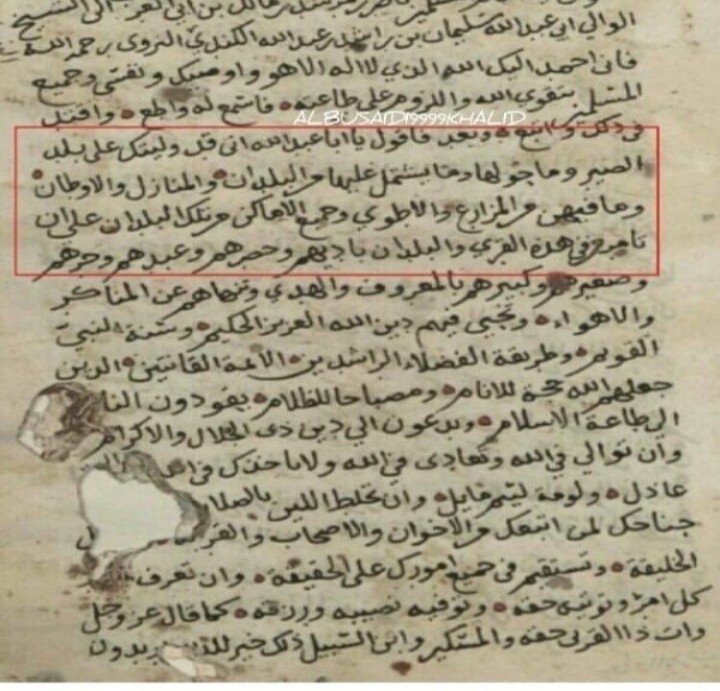 الوالي ابي عبد الله سليمان بن راشد بن عبد الله الكندي النزوي رحمه الله
فاني احمد اليك الله الذي لا اله الا هو واوصيك ونفسي وجميع
المسلمين بتقوى الله واللزوم على طاعته فاستمع له واطع واقتد
ALBUSAIDI99999KHALID
في ذلك واتبع وبعد فاقول يا ابا عبد الله اني قد وليتك على بلد
الصير وما حولها وما يشتمل عليها من البلدان والمنازل والاوطان
وما فيهن من المزارع والاطوي وجميع الاماكن من تلك البلدان على ان
تامر في هذه القرى والبلدان باديهم وحضرهم وعبدهم وحرهم
وصغيرهم وكبيرهم بالمعروف والهدى وتنهاهم عن المناكر
والاهواء وتحيي فيهم دين الله العزيز الحكيم وسنة النبي
القويم وطريقة الفضلاء الراشدين الائمة القانتين الذين
جعلهم الله حجة للانام ومصباحا للظلام يقودون
الى طاعة الاسلام ويدعون الى دين ذي الجلال والاكرام
وان توالي في الله وتعادي في الله ولا تاخذك في
عاذل ولومة لائم قايل وان تخلط اللين
جناحك لمن اتبعك من الاخوان والاصحاب
الخليقة وتستقيم في جميع امورك على الحقيقة وان تعرف
كل امرؤ وتوتيه حقه وتوفيه نصيبه ورزقه كما قال عز وجل
وات ذا القربى حقه والمسكين وابن السبيل ذلك خير للذين يريدون